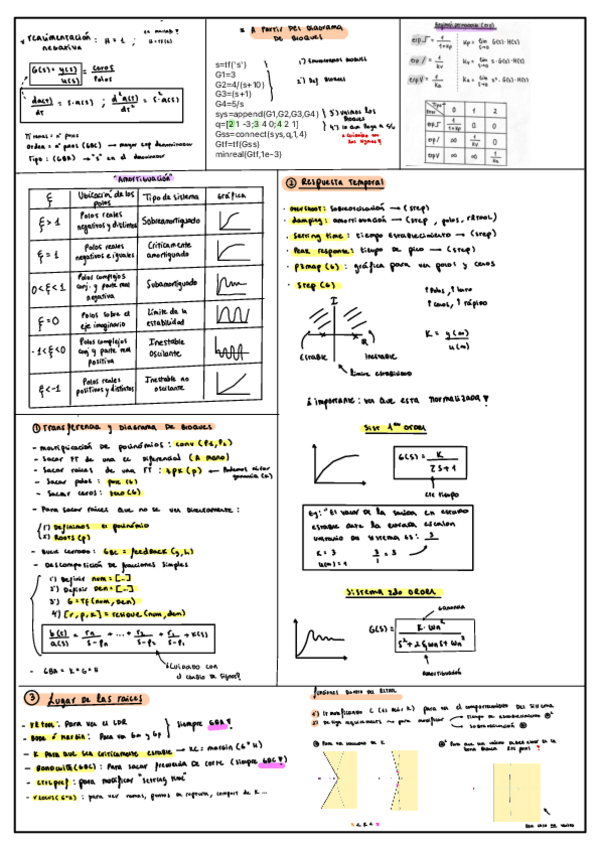 * realimentación : H = 1 ;
negativa
G(s) = y(s) / u(s) = ceros / Polos
da(t)/dt = s·a(s) ; d²a(t)/dt² = s²·a(s)
Orden = nº polos (GBC) → mayor exp denominador
Tipo : (GBA) → "s" en el denominador
* A PARTIR DEL DIAGRAMA
DE BLOQUES
s=tf('s')
G1=3
G2=4/(s+10)
G3=(s+1)
G4=5/s
sys=append(G1,G2,G3,G4)
q=[2 1 -3;3 4 0;4 2 1]
Gss=connect(sys,q,1,4)
Gtf=tf(Gss)
minreal(Gtf,1e-3)
1') Enumeramos bloques
2') Def bloques
3') unimos los
bloques
Régimen permanente (erp)
erp = 1/(1+kp) kp = lim s→0 G(s)·H(s)
erp / = 1/kv kv = lim s→0 s·G(s)·H(s)
erp V = 1/ka ka = lim s→0 s²·G(s)·H(s)
Tipo 0 1 2
erp 1/(1+kp) 0 0
erp / ∞ 1/kv 0
erp V ∞ ∞ 1/ka
"AMORTIGUACIÓN"
ξ Ubicación de los polos Tipo de sistema Gráfica
ξ > 1 Polos reales negativos y distintos Sobreamortiguado
ξ = 1 Polos reales negativos e iguales Críticamente amortiguado
0 < ξ < 1 Polos complejos conj. y parte real negativa Subamortiguado
ξ = 0 Polos sobre el eje imaginario Límite de la estabilidad
-1 < ξ < 0 Polos complejos conj y parte real positiva Inestable oscilante
ξ < -1 Polos reales positivos y distintos Inestable no oscilante
② RESPUESTA TEMPORAL
· overshoot: sobreoscilación → (step)
· damping: amortiguación → (step, polos, rltool)
· Setting time: tiempo establecimiento → (step)
· Peak response: tiempo de pico → (step)
· pzmap (G) : gráfica para ver polos y ceros
· Step (G)
↑ Polos, ↑ lento
↑ ceros, ↑ rápido
I
R
ESTABLE INESTABLE
límite estabilidad
K = y(∞) / u(∞)
importante: ver que esta normalizada
SIST 1er ORDEN
G(s) = K / (τs+1)
cte tiempo
Ej: "El valor de la salida en estado
estable ante la entrada escalon
unitario de sistema es: 3
K = 3 3/1 = 3
u(∞) = 1
SISTEMA 2do ORDEN
ganancia
G(s) = K·ωn² / (s²+2ξωns+ωn²)
AMORTIGUACIÓN
① Transferencia y Diagrama de Bloques
- multiplicación de polinomios : conv (P1, P2)
- Sacar FT de una ec diferencial (A mano)
- Sacar raices de una FT : zpk (p) ← Podemos mirar
ganancia (k)
- Sacar polos : pole (G)
- Sacar ceros : zero (G)
- Para sacar raices que no se ven directamente :
1') Definimos el polinómio
2') Roots (p)
- Bucle cerrado : GBC = feedback (G, H)
- Descomposición de fracciones simples
1') Definir num = [...]
2') Definir Den = [...]
3') G = TF (num, Den)
4') [r, p, k] = residue (num, den)
b(s)/a(s) = rn/(s-pn) + ... + r2/(s-p2) + r1/(s-p1) + K(s)
¡Cuidado con
el cambio de signos!
- GBA = K * G * H
③ Lugar de las raices
- rltool : Para ver el LDR
- Bode o Margin : Para ver Gm y Gp
siempre GBA!
- K para que sea críticamente estable → Kc = margin (G * H)
- Bandwidth (GBC) : Para sacar frecuencia de corte (siempre GBC!)
- ctrlpref : para modificar "setting time"
- rlocus (G*H) : para ver ramas, puntos de ruptura, comport de K ...
1') Ir modificando C (es decir K) para ver el comportamiento del sistema